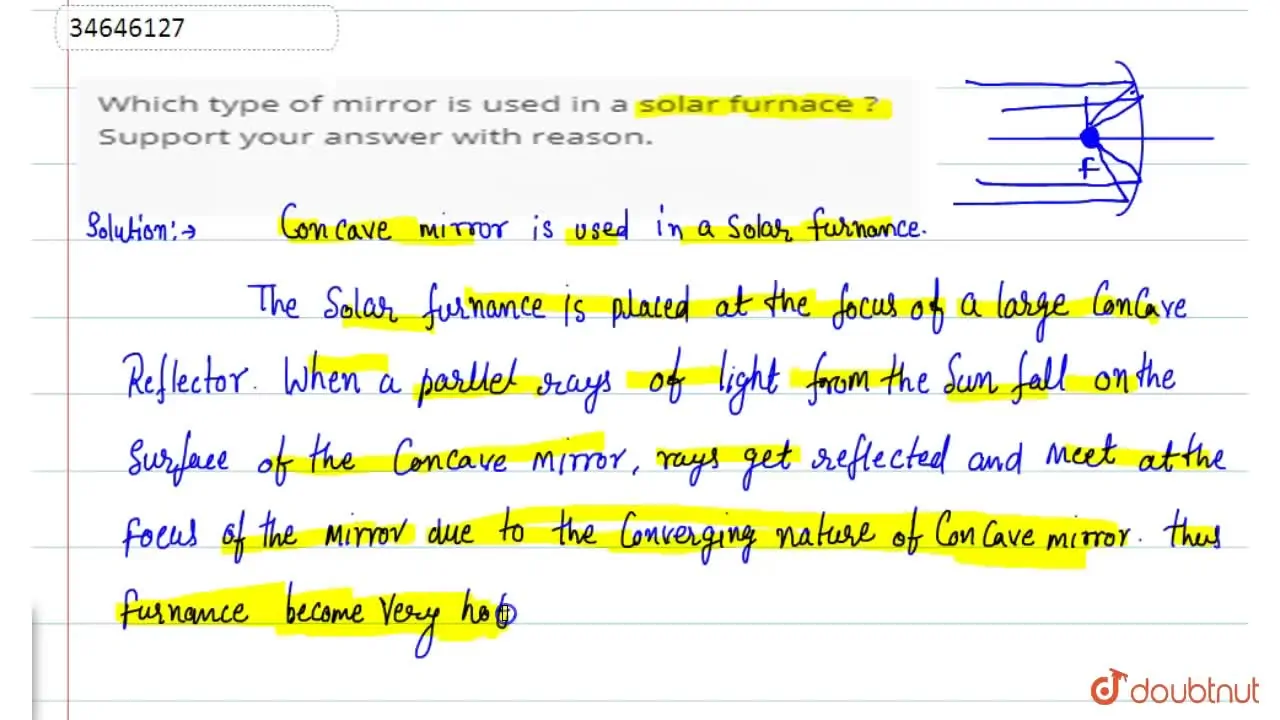 34646127
Which type of mirror is used in a solar furnace ?
Support your answer with reason.
F
Solution:→ Concave mirror is used in a solar furnance.
The Solar furnance is placed at the focus of a large Concave
Reflector. When a parllel rays of light from the Sun fall on the
Surface of the Concave mirror, rays get reflected and meet at the
focus of the mirror due to the Converging nature of Concave mirror. thus
furnance become very hot
doubtnut